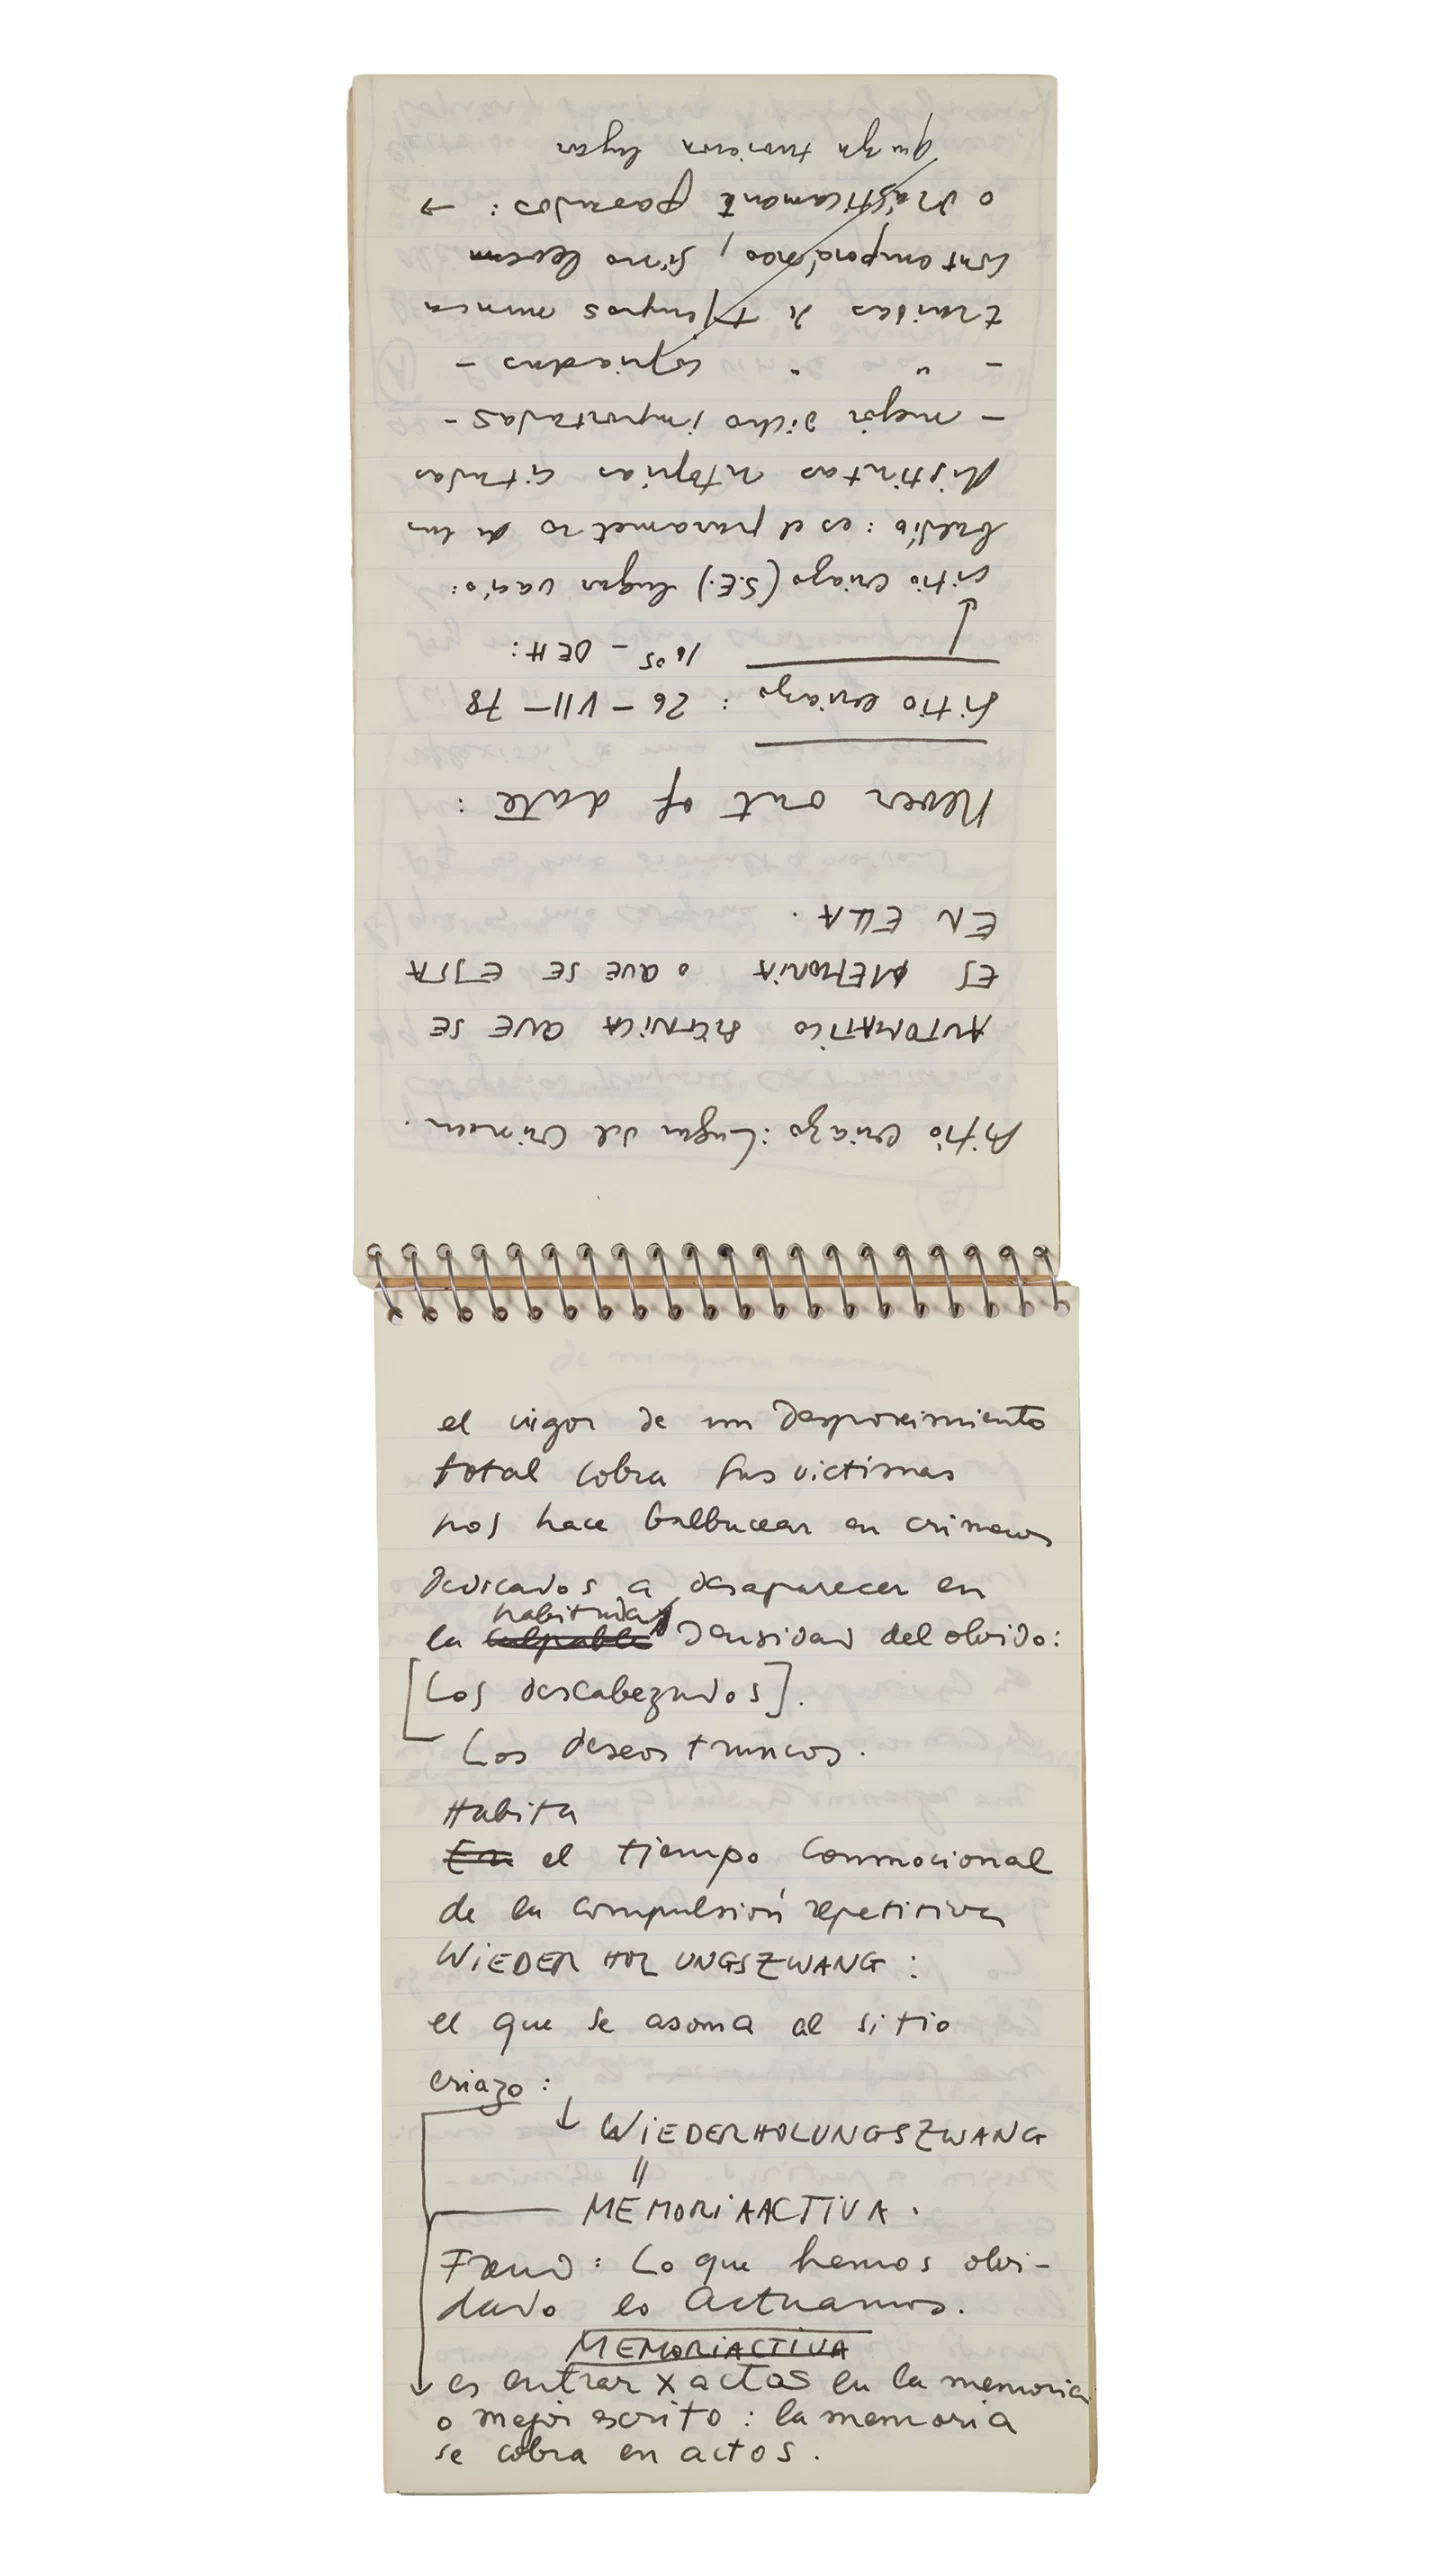 Sitio eriazo: Lugar del Crimen.
AUTOMATICO SIGNICA QUE SE
ES MEMORIA O QUE SE ESTA
EN ELLA.
Never out of date:
Sitio eriazo: 26-VII-78
16 05 - DEH:
↓
sitio eriazo (S.E.) lugar vacío:
baldío: es el parametro de las
distintas utopias citadas
- mejor dicho importadas -
- " " copiadas -
traidas de tiempos nunca
contemporáneos, sino
o drásticamente pasados: →
quiza tuvieron lugar
el vigor de un Desposeimiento
total cobra sus victimas
nos hace balbucear en crimenes
Dedicados a desaparecer en
habitual
la culpable Densidad del olvido:
[Los descabezados].
Los deseos truncos.
Habita
En el tiempo Conmocional
de la compulsión repetitiva
WiEDER HOL UNGSZWANG:
el que se asoma al sitio
eriazo:
↓ WiEDERHOLUNGSZWANG
=
MEMORiAACTiVA.
Freud: Lo que hemos olvi-
dado lo Actuamos.
MEMORiACTiVA
es entrar x actos en la memoria
o mejor escrito: la memoria
se cobra en actos.